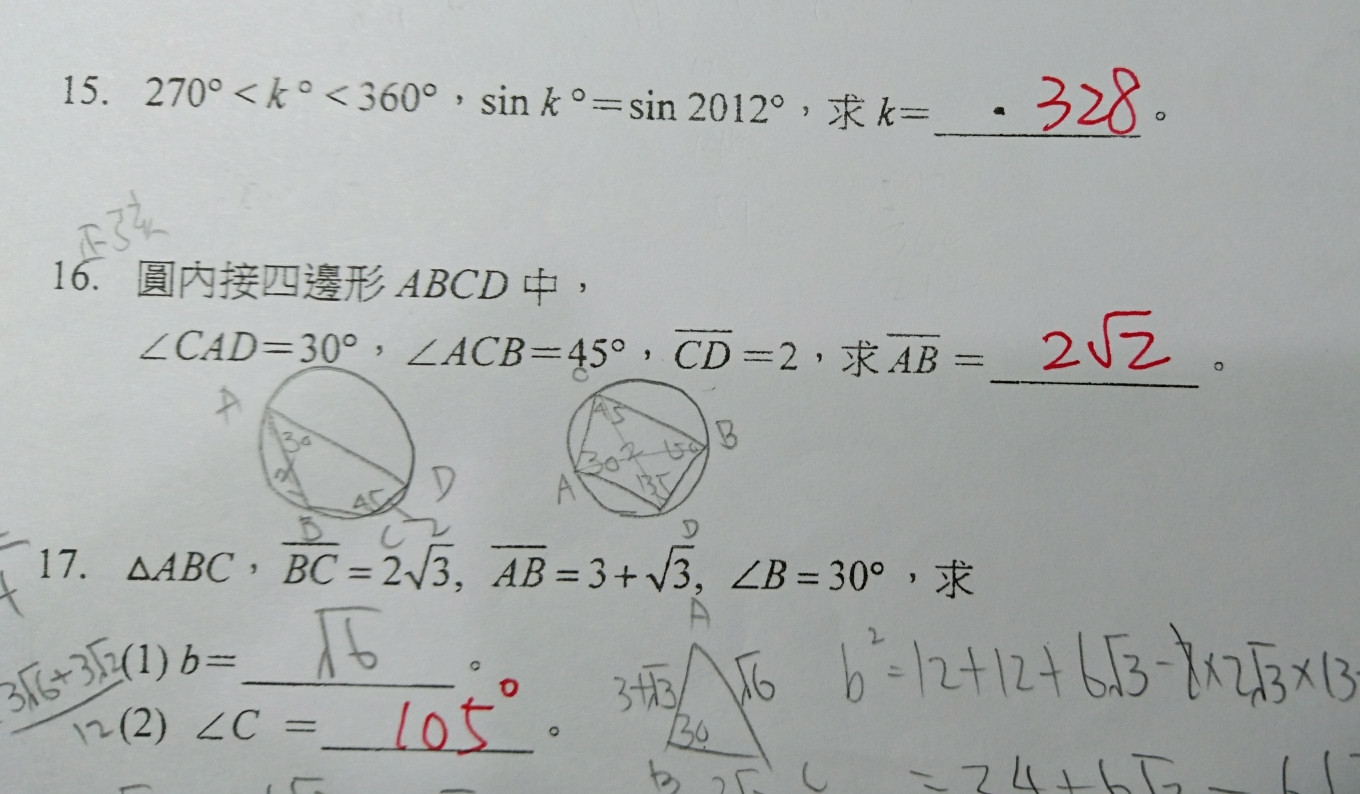 15. 270° < k° < 360°，sin k°=sin 2012°，求 k= 328。
16. 圓內接四邊形 ABCD 中，
∠CAD=30°，∠ACB=45°，CD=2，求 AB = 2√2。
A 30 45 B C D 2
C 45 A 30 2 150 B 135 D
17. △ABC，BC = 2√3, AB = 3+√3, ∠B = 30°，求
(1) b= √6。
3√6+3√2
12
(2) ∠C = 105°。
A 3+√3 √6 30 B C
b²=12+12+6√3-2×2√3×(3
=24+6√3-6